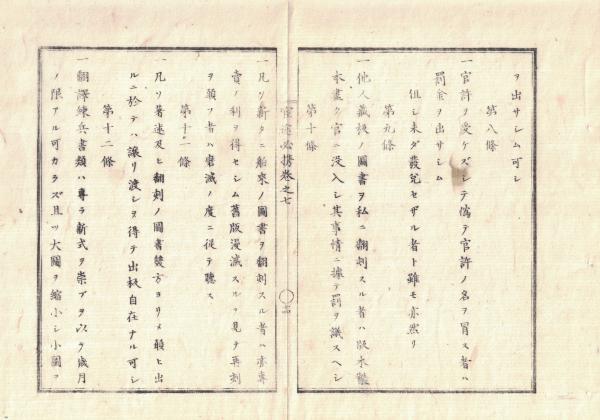 ヲ出サシム可シ
第八條
一官許ヲ受ケズシテ僞テ官許ノ名ヲ冒ス者ハ
罰金ヲ出サシム
但シ未ダ發兌セザル者ト雖モ亦然リ
第九條
一他人藏板ノ圖書ヲ私ニ翻刻スル者ハ版木製
本盡ク官ニ没入シ其事情ニ據テ罰ヲ議スヘシ
第十條
官途必携卷之七
一凡ソ新タニ舶來ノ圖書ヲ翻刻スル者ハ亦專
賣ノ利ヲ得セシム舊版漫滅スルヲ見テ再刻
ヲ願フ者ハ磨滅ノ度ニ從テ聽ス
第十一條
一凡ソ著述及ヒ翻刻ノ圖書雙方ヨリ〆願ヒ出
ルニ於テハ讓リ渡シヲ得テ出板自在ナル可シ
第十二條
一翻譯練兵書類ハ專ラ新式ヲ崇ブヲ以テ歳月
ノ限アル可カラズ且ツ大圖ヲ縮小シ小圖ヲ